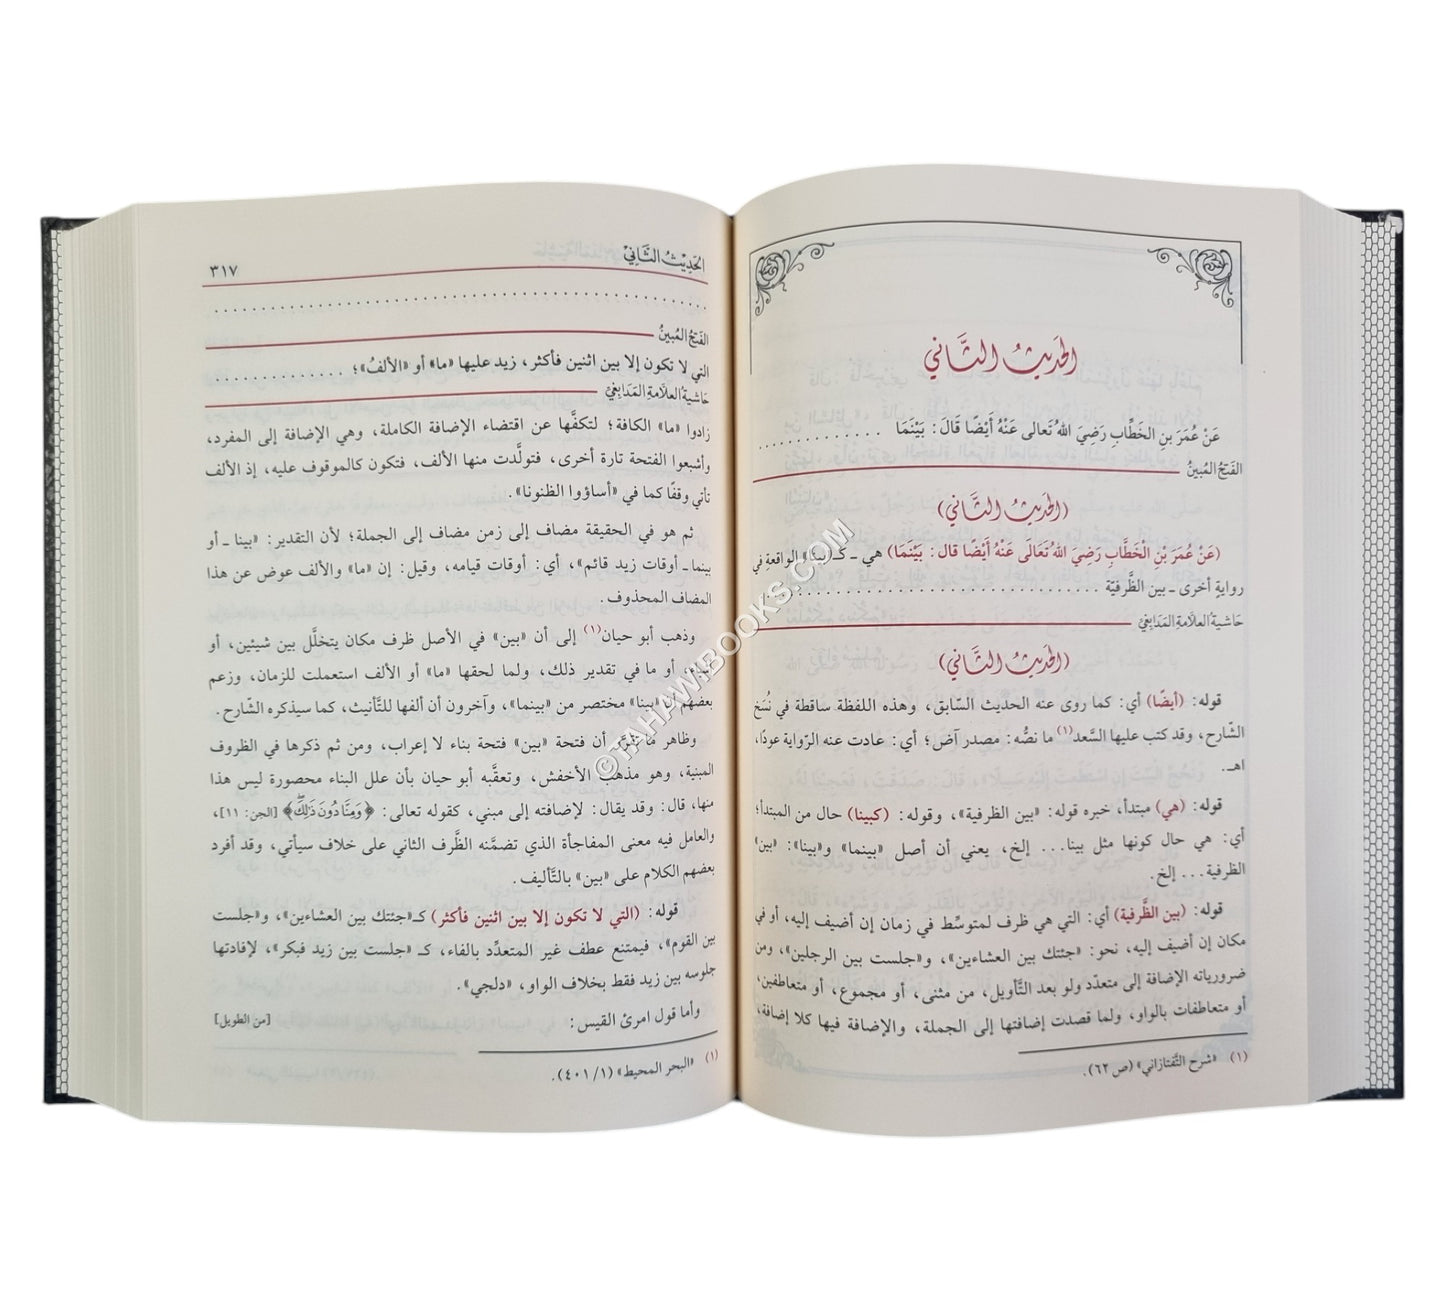 الحَدِيثُ الثَّانِي
عَنْ عُمَرَ بنِ الخَطَّابِ رَضِيَ اللهُ تَعالى عَنْهُ أَيْضًا قَالَ: بَيْنَمَا . . . . . . . . . . . . .
الفَتْحُ المُبِينُ
(الحَدِيثُ الثَّانِي)
(عَنْ عُمَرَ بْنِ الْخَطَّابِ رَضِيَ اللهُ تَعَالَى عَنْهُ أَيْضًا قال: بَيْنَمَا) هي ـ كـ«بينا» الواقعةِ في
روايةٍ أخرى ـ بين الظَّرفيّة . . . . . . . . . . . . . . . . . . . . . . . . . . . . . .
حَاشِيةُ العلَّامةِ المَدَابِغيِّ
(الحَدِيثُ الثَّانِي)
قوله: (أيضًا) أي: كما روى عنه الحديث السّابق، وهذه اللفظة ساقطة في نُسَخ
الشّارح، وقد كتب عليها السَّعد(١) ما نصُّه: مصدر آض؛ أي: عادت عنه الرّواية عودًا،
اهـ.
قوله: (هي) مبتدأ، خبره قوله: «بين الظرفية»، وقوله: (كبينا) حال من المبتدأ؛
أي: هي حال كونها مثل بينا... إلخ، يعني أن أصل «بينما» و«بينا»: «بين»
الظرفية... إلخ.
قوله: (بين الظَّرفية) أي: التي هي ظرف لمتوسِّط في زمان إن أضيف إليه، أو في
مكان إن أضيف إليه، نحو: «جئتك بين العشاءين»، و«جلست بين الرجلين»، ومن
ضرورياته الإضافة إلى متعدّد ولو بعد التَّأويل، من مثنى، أو مجموع، أو متعاطفين،
أو متعاطفات بالواو، ولما قصدت إضافتها إلى الجملة، والإضافة فيها كلا إضافة،
(١) «شرح التَّفتازاني» (ص ٦٢).
الحَدِيْثُ الثَّانِيْ
٣١٧
. . . . . . . . . . . . . . . . . . . . . . . . . . . . . . . . . . . . . . . .
الفَتْحُ المُبِينُ
التي لا تكون إلا بين اثنين فأكثر، زيد عليها «ما» أو «الألفُ»؛ . . . . . . . . . . . . .
حَاشِيةُ العلَّامةِ المَدَابِغيِّ
زادوا «ما» الكافة؛ لتكفَّها عن اقتضاء الإضافة الكاملة، وهي الإضافة إلى المفرد،
وأشبعوا الفتحة تارة أخرى، فتولَّدت منها الألف، فتكون كالموقوف عليه، إذ الألف
تأتي وقفًا كما في «أساؤوا الظنونا».
ثم هو في الحقيقة مضاف إلى زمن مضاف إلى الجملة؛ لأن التقدير: «بينا ـ أو
بينما ـ أوقات زيد قائم»، أي: أوقات قيامه، وقيل: إن «ما» والألف عوض عن هذا
المضاف المحذوف.
وذهب أبو حيان(١) إلى أن «بين» في الأصل ظرف مكان يتخلَّل بين شيئين، أو
أشياء، أو ما في تقدير ذلك، ولما لحقها «ما» أو الألف استعملت للزمان، وزعم
بعضهم أن «بينا» مختصر من «بينما»، وآخرون أن ألفها للتَّأنيث، كما سيذكره الشّارح.
وظاهر ما تقرّر أن فتحة «بين» فتحة بناء لا إعراب، ومن ثم ذكرها في الظروف
المبنية، وهو مذهب الأخفش، وتعقَّبه أبو حيان بأن علل البناء محصورة ليس هذا
منها، قال: وقد يقال: لإضافته إلى مبني، كقوله تعالى: ﴿وَمِنَّا دُونَ ذَٰلِكَ﴾ [الجن: ١١]،
والعامل فيه معنى المفاجأة الذي تضمَّنه الظَّرف الثاني على خلاف سيأتي، وقد أفرد
بعضهم الكلام على «بين» بالتَّأليف.
قوله: (التي لا تكون إلا بين اثنين فأكثر) كـ«جئتك بين العشاءين»، و«جلست
بين القوم»، فيمتنع عطف غير المتعدِّد بالفاء، كـ «جلست بين زيد فبكر»، لإفادتها
جلوسه بين زيد فقط بخلاف الواو، «دلجي».
وأما قول امرئ القيس:
[من الطويل]
(١) «البحر المحيط» (١/ ٤٠١).
©TAHAWIBOOKS.COM